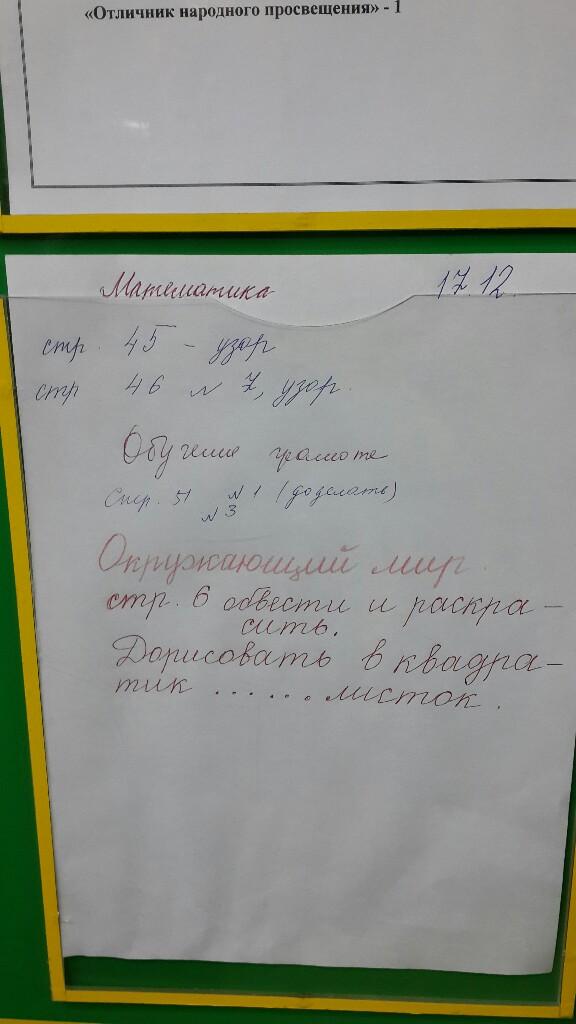 «Отличник народного просвещения» - 1
Математика 17.12.
стр. 45 - узор
стр 46 № 7, узор.
Обучение грамоте
Стр. 51 № 1 (доделать)
№ 3
Окружающий мир.
стр. 6 обвести и раскра-
сить.
Дорисовать в квадра-
тик ...... листок.